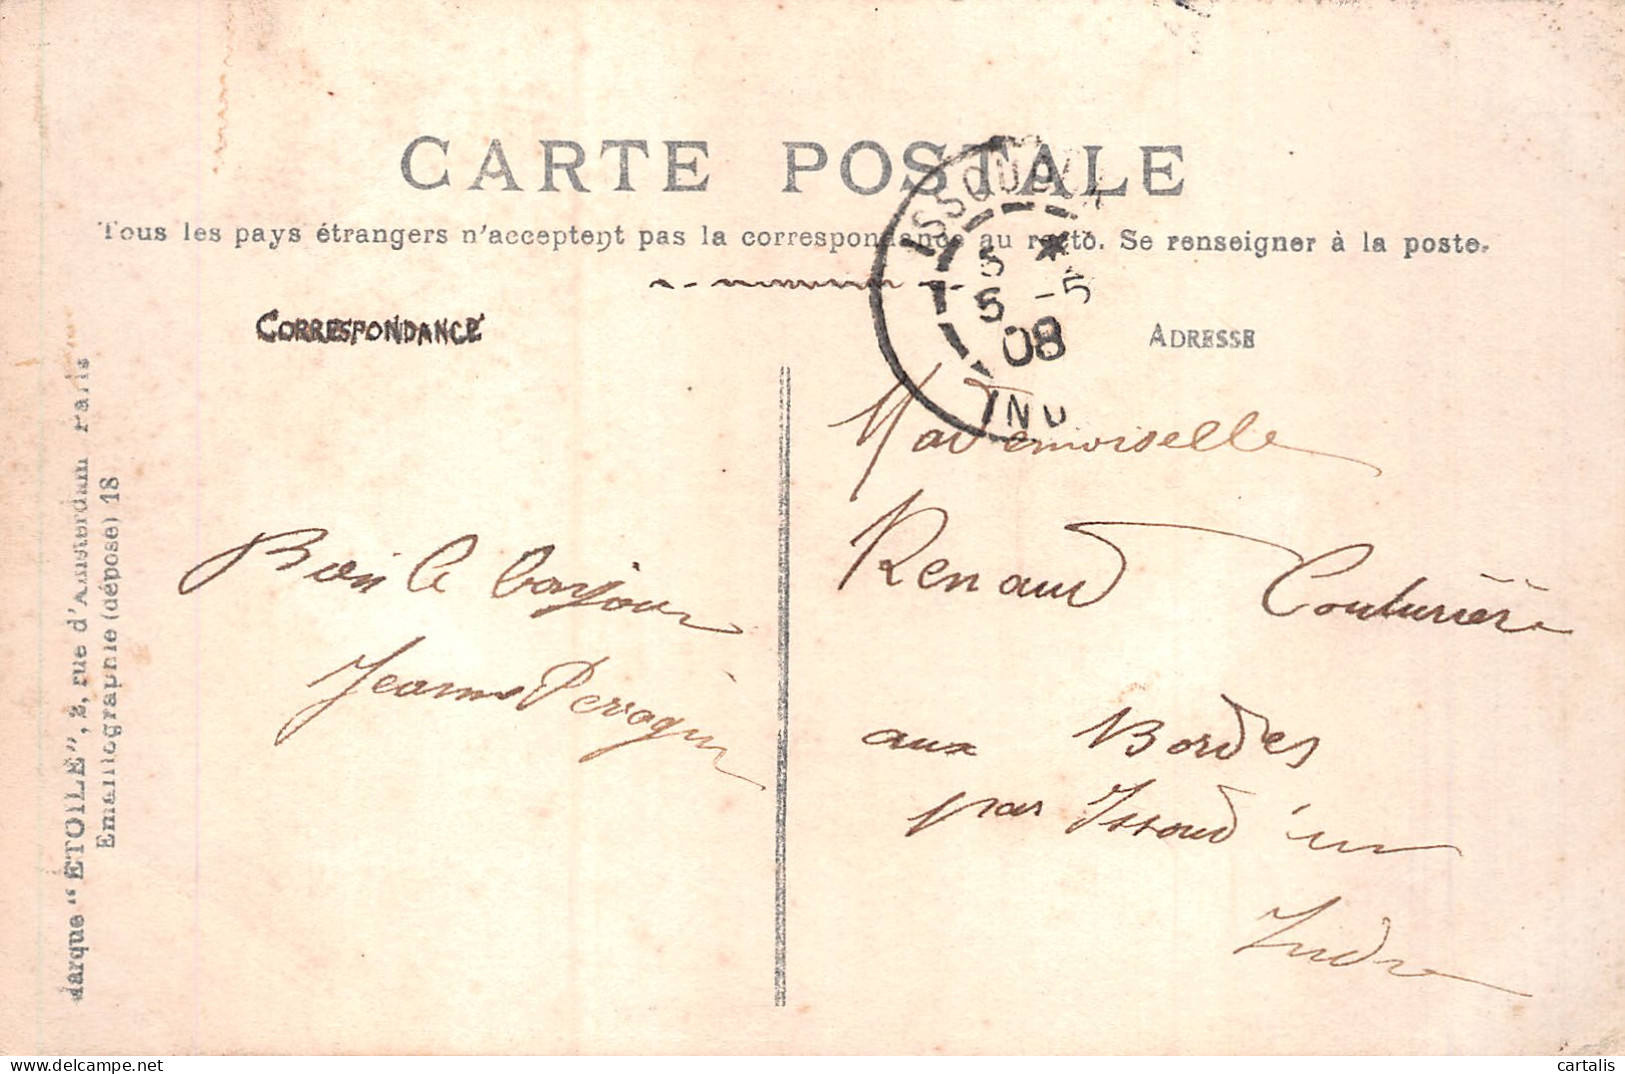 CARTE POSTALE
Tous les pays étrangers n'acceptent pas la correspondance au recto. Se renseigner à la poste.
CORRESPONDANCE
ADRESSE
ISSOUDUN
5 *
5 -5
08
IND
Marque "ETOILE", 2, rue d'Amsterdam Paris
Emaillographie (déposé) 18
Bien le bonjour
Jeanne
Mademoiselle
Renaud Couturière
aux Bordes
par Issoudun
Indre
cartalis